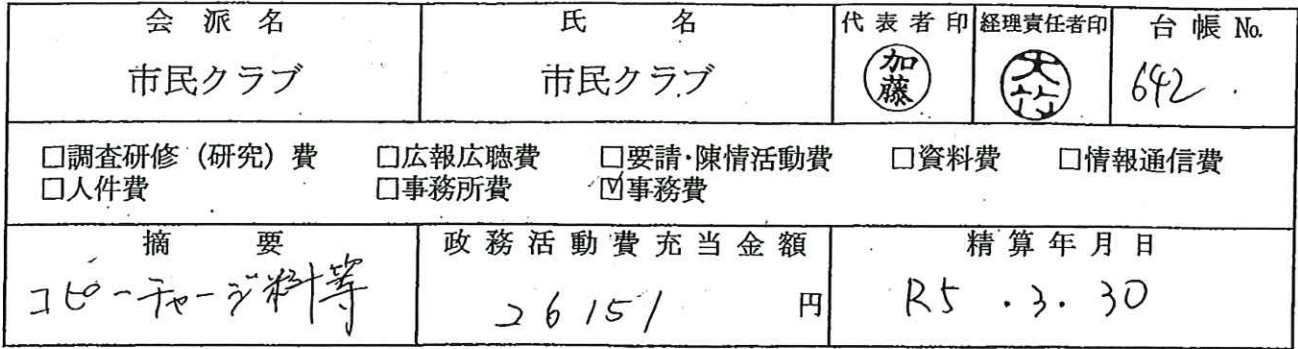 会派名 氏名 代表者印 経理責任者印 台帳No.
市民クラブ 市民クラブ 加藤 大竹 642.
□調査研修（研究）費 □広報広聴費 □要請・陳情活動費 □資料費 □情報通信費
□人件費 □事務所費 ☑事務費
摘要 政務活動費充当金額 精算年月日
コピーチャージ料等 26151 円 R5.3.30